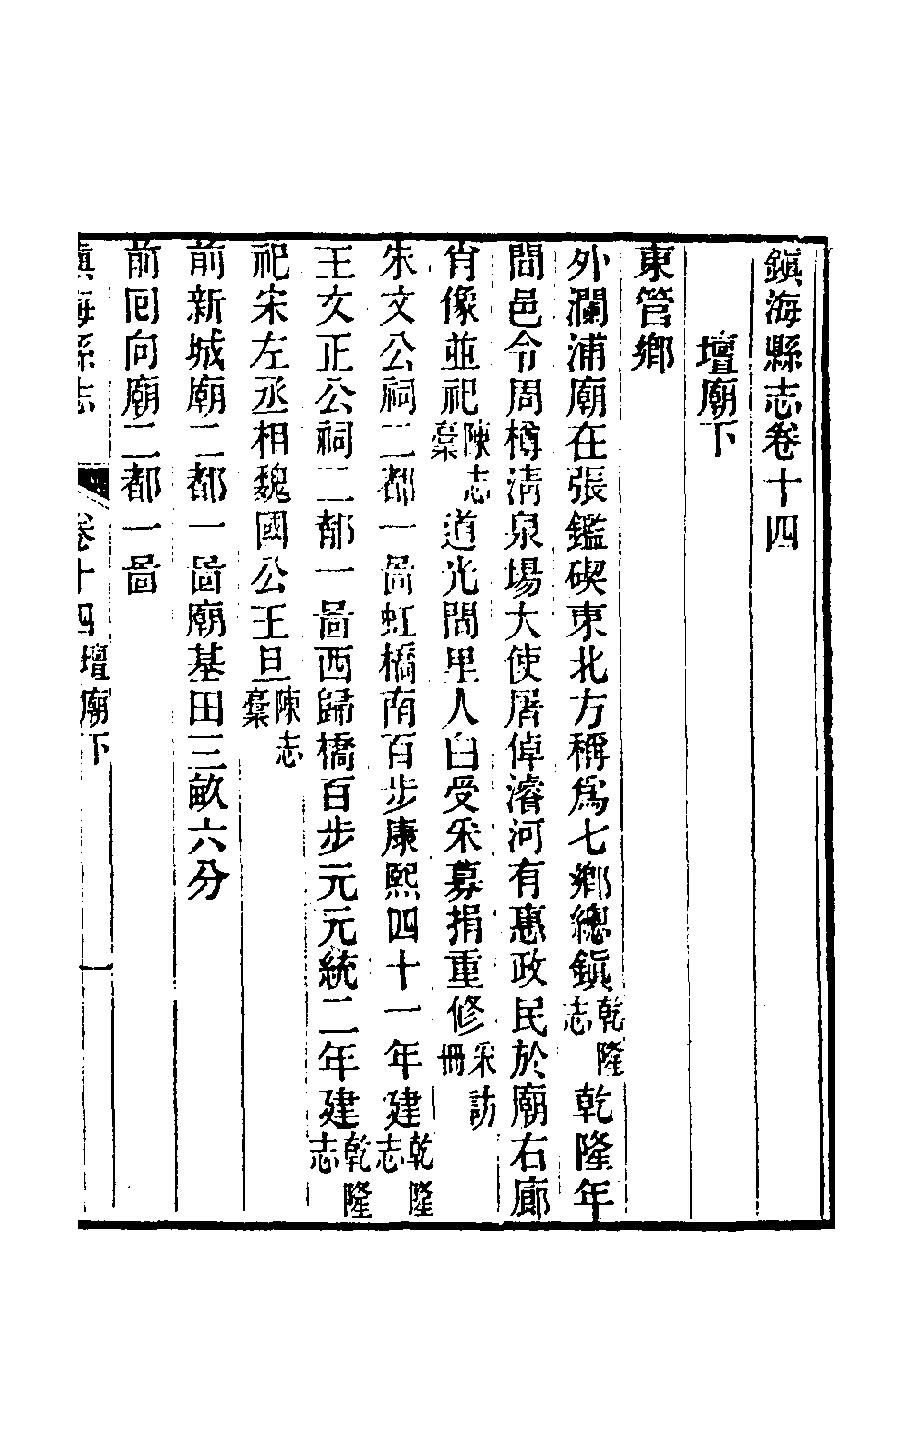 鎮海縣志卷十四
壇廟下
東管鄉
外瀾浦廟在張鑑碶東北方稱爲七鄉總鎮乾隆志乾隆年
間邑令周樽淸泉場大使屠倬濬河有惠政民於廟右廊
肖像並祀陳志槀道光間里人白受采募捐重修采訪冊
朱文公祠二都一啚虹橋南百步康熙四十一年建乾隆志
王文正公祠二都一啚西歸橋百步元元統二年建乾隆志
祀宋左丞相魏國公王旦陳志槀
前新城廟二都一啚廟基田三畝六分
前回向廟二都一啚
鎮海縣志 卷十四壇廟下 一